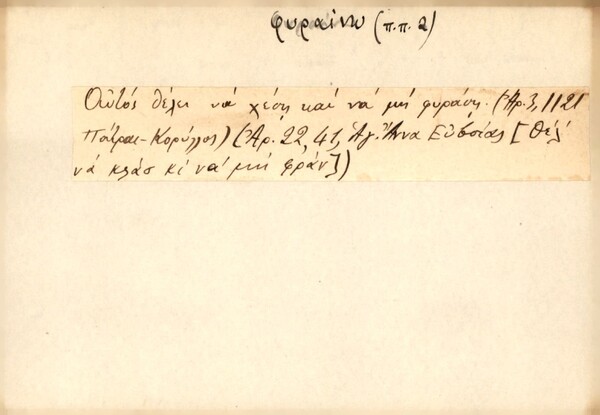 φυραίνω (π.π. 2)
Οὗτός θέλει νά χέση καί νά μή φυράση. (Ἀρ. 3, 1121
Πάτραι-Κορύλλος) (Ἀρ. 22, 41, Ἁγ. Ἄννα Εὐβοίας [Θέλ'
νά κλάσ κί νά μή φράν])